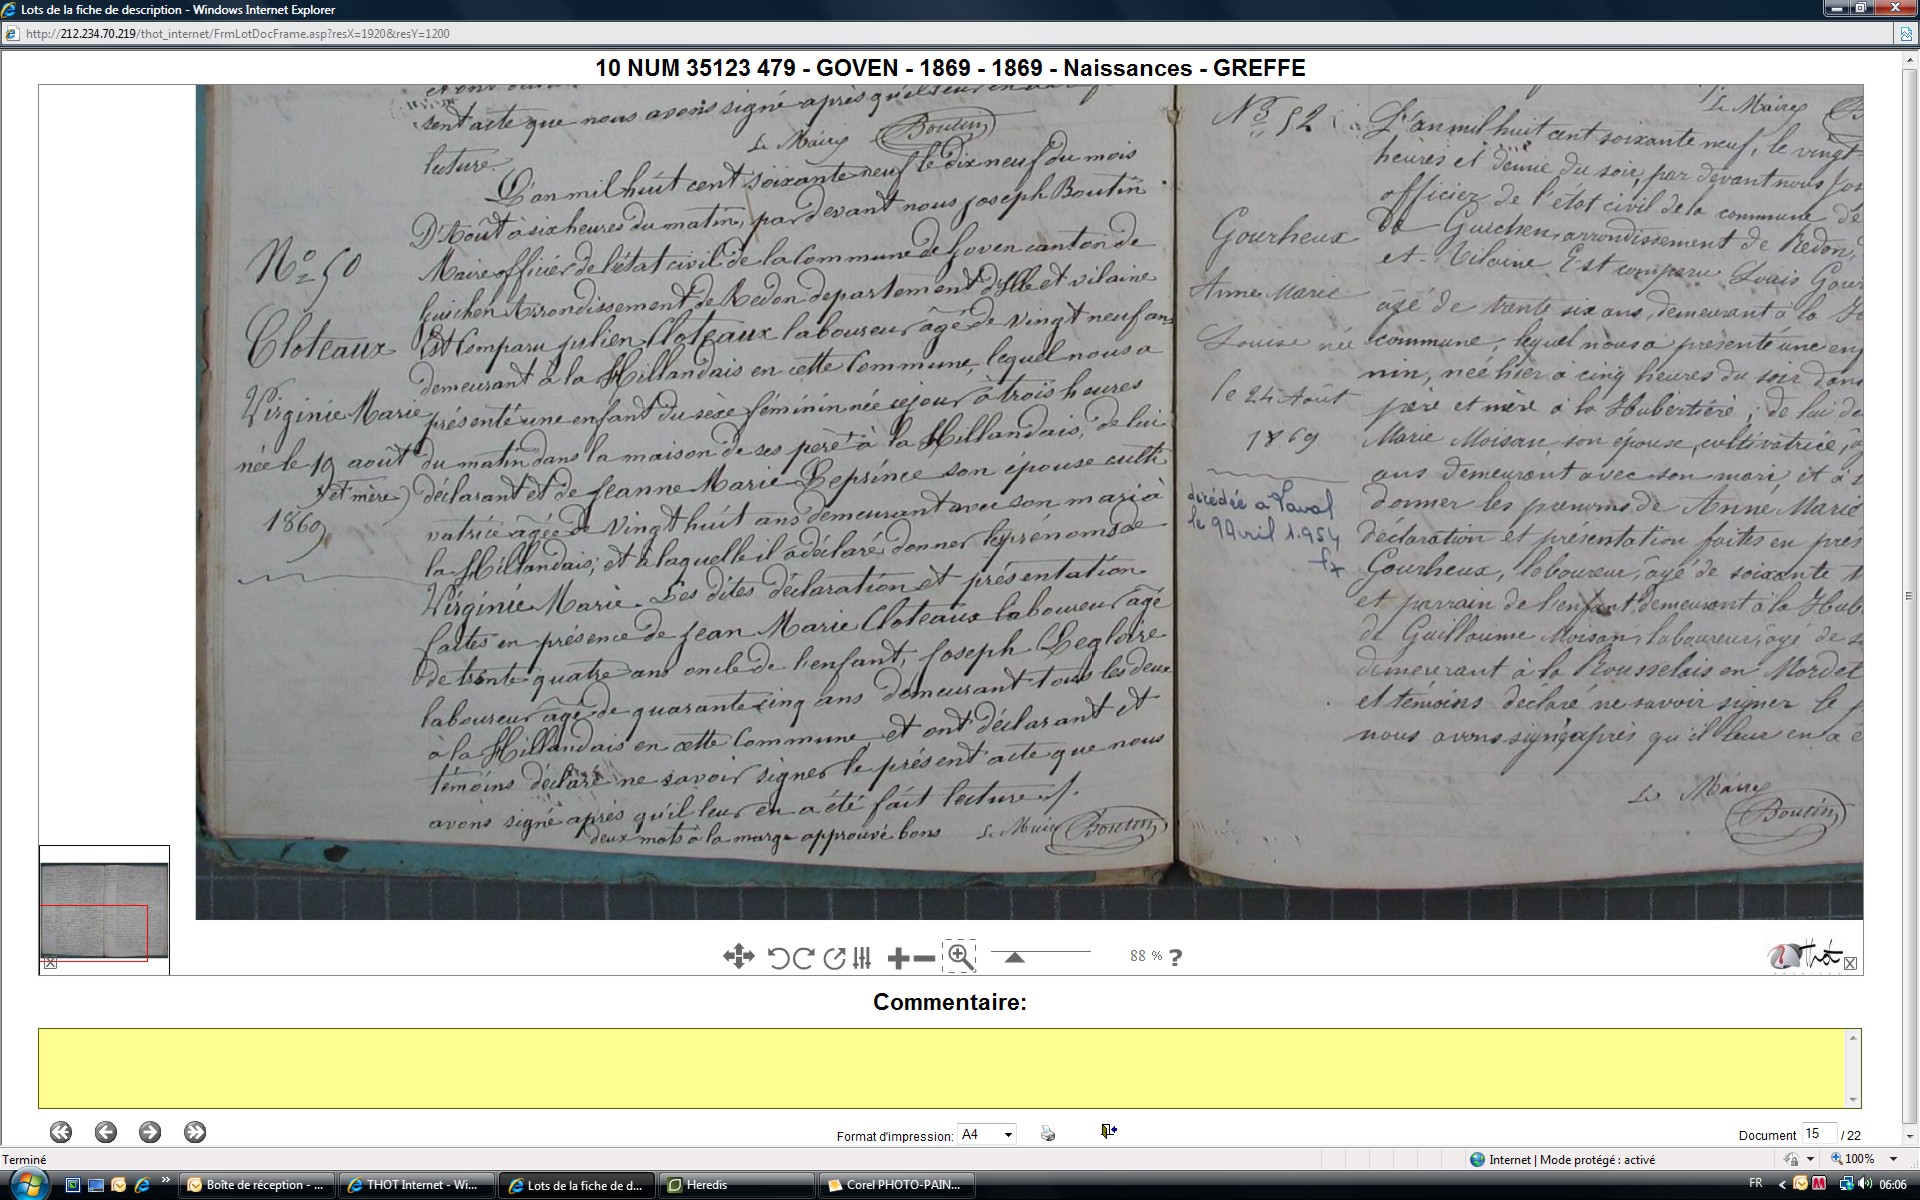 Lots de la fiche de description - Windows Internet Explorer
http://212.234.70.219/thot_internet/FrmLotDocFrame.asp?resX=1920&resY=1200
10 NUM 35123 479 - GOVEN - 1869 - 1869 - Naissances - GREFFE
sent acte que nous avons signé après qu'il leur en a
lecture.
Le Maire Boutin
L'an mil huit cent soixante neuf le dix neuf du mois
D'Août à six heures du matin, par devant nous Joseph Boutin
Maire officier de l'état civil de la Commune de Goven canton de
Guichen Arrondissement de Redon departement d'Ille et vilaine
Est Comparu Julien Cloteaux laboureur âgé de vingt neuf ans
demeurant à la Hillandais en cette Commune, lequel nous a
présenté une enfant du sèxe féminin née ce jour à trois heures
du matin dans la maison de ses père à la Hillandais, de lui
déclarant et de Jeanne Marie Leprince son épouse culti
vatrice âgée de vingt huit ans demeurant avec son mari à
la Hillandais; et à laquelle il a déclaré donner les prénoms de
Virginie Marie. Les dites déclaration et présentation
faites en présence de Jean Marie Cloteaux laboureur âgé
de trente quatre ans oncle de l'enfant, Joseph Legloire
laboureur âgé de quarante cinq ans demeurant tous les deux
à la Hillandais en cette Commune, et ont déclarant et
témoins déclaré ne savoir signer le présent acte que nous
avons signé après qu'il leur en a été fait lecture /.
deux mots à la marge approuvé bons Le Maire Boutin
No 50
Cloteaux
Virginie Marie
née le 19 août
x et mère)
1869
Le Maire
No 52
L'an mil huit cent soixante neuf, le vingt
heures et demie du soir, par devant nous Jos
officier de l'état civil de la commune de
de Guichen, arrondissement de Redon,
et Vilaine Est comparu Louis Gour
âgé de trente six ans, demeurant à la
commune, lequel nous a présenté une en
nin, née hier à cinq heures du soir dans
père et mère à la Hubertière; de lui dé
Marie Moisan, son épouse, cultivatrice,
ans demeurant avec son mari, et à
donner les prenoms de Anne Marie
déclaration et présentation faites en prés
Gourheux, laboureur, âgé de soixante
et parrain de l'enfant, demeurant à la Hub
de Guillaume Moisan, laboureur, âgé de
demeurant à la Rousselais en Mordel
et témoins déclaré ne savoir signer le
nous avons signé après qu'il leur en a é
Le Maire
Boutin
Gourheux
Anne Marie
Louise née
le 24 Août
1869
décédée à Laval
le 9 Avril 1954
88 % ?
Thot
Commentaire:
Format d'impression: A4
Document 15 / 22
Terminé
Internet | Mode protégé : activé
100%
Boîte de réception - ...
THOT Internet - Wi...
Lots de la fiche de d...
Heredis
Corel PHOTO-PAIN...
FR
06:06